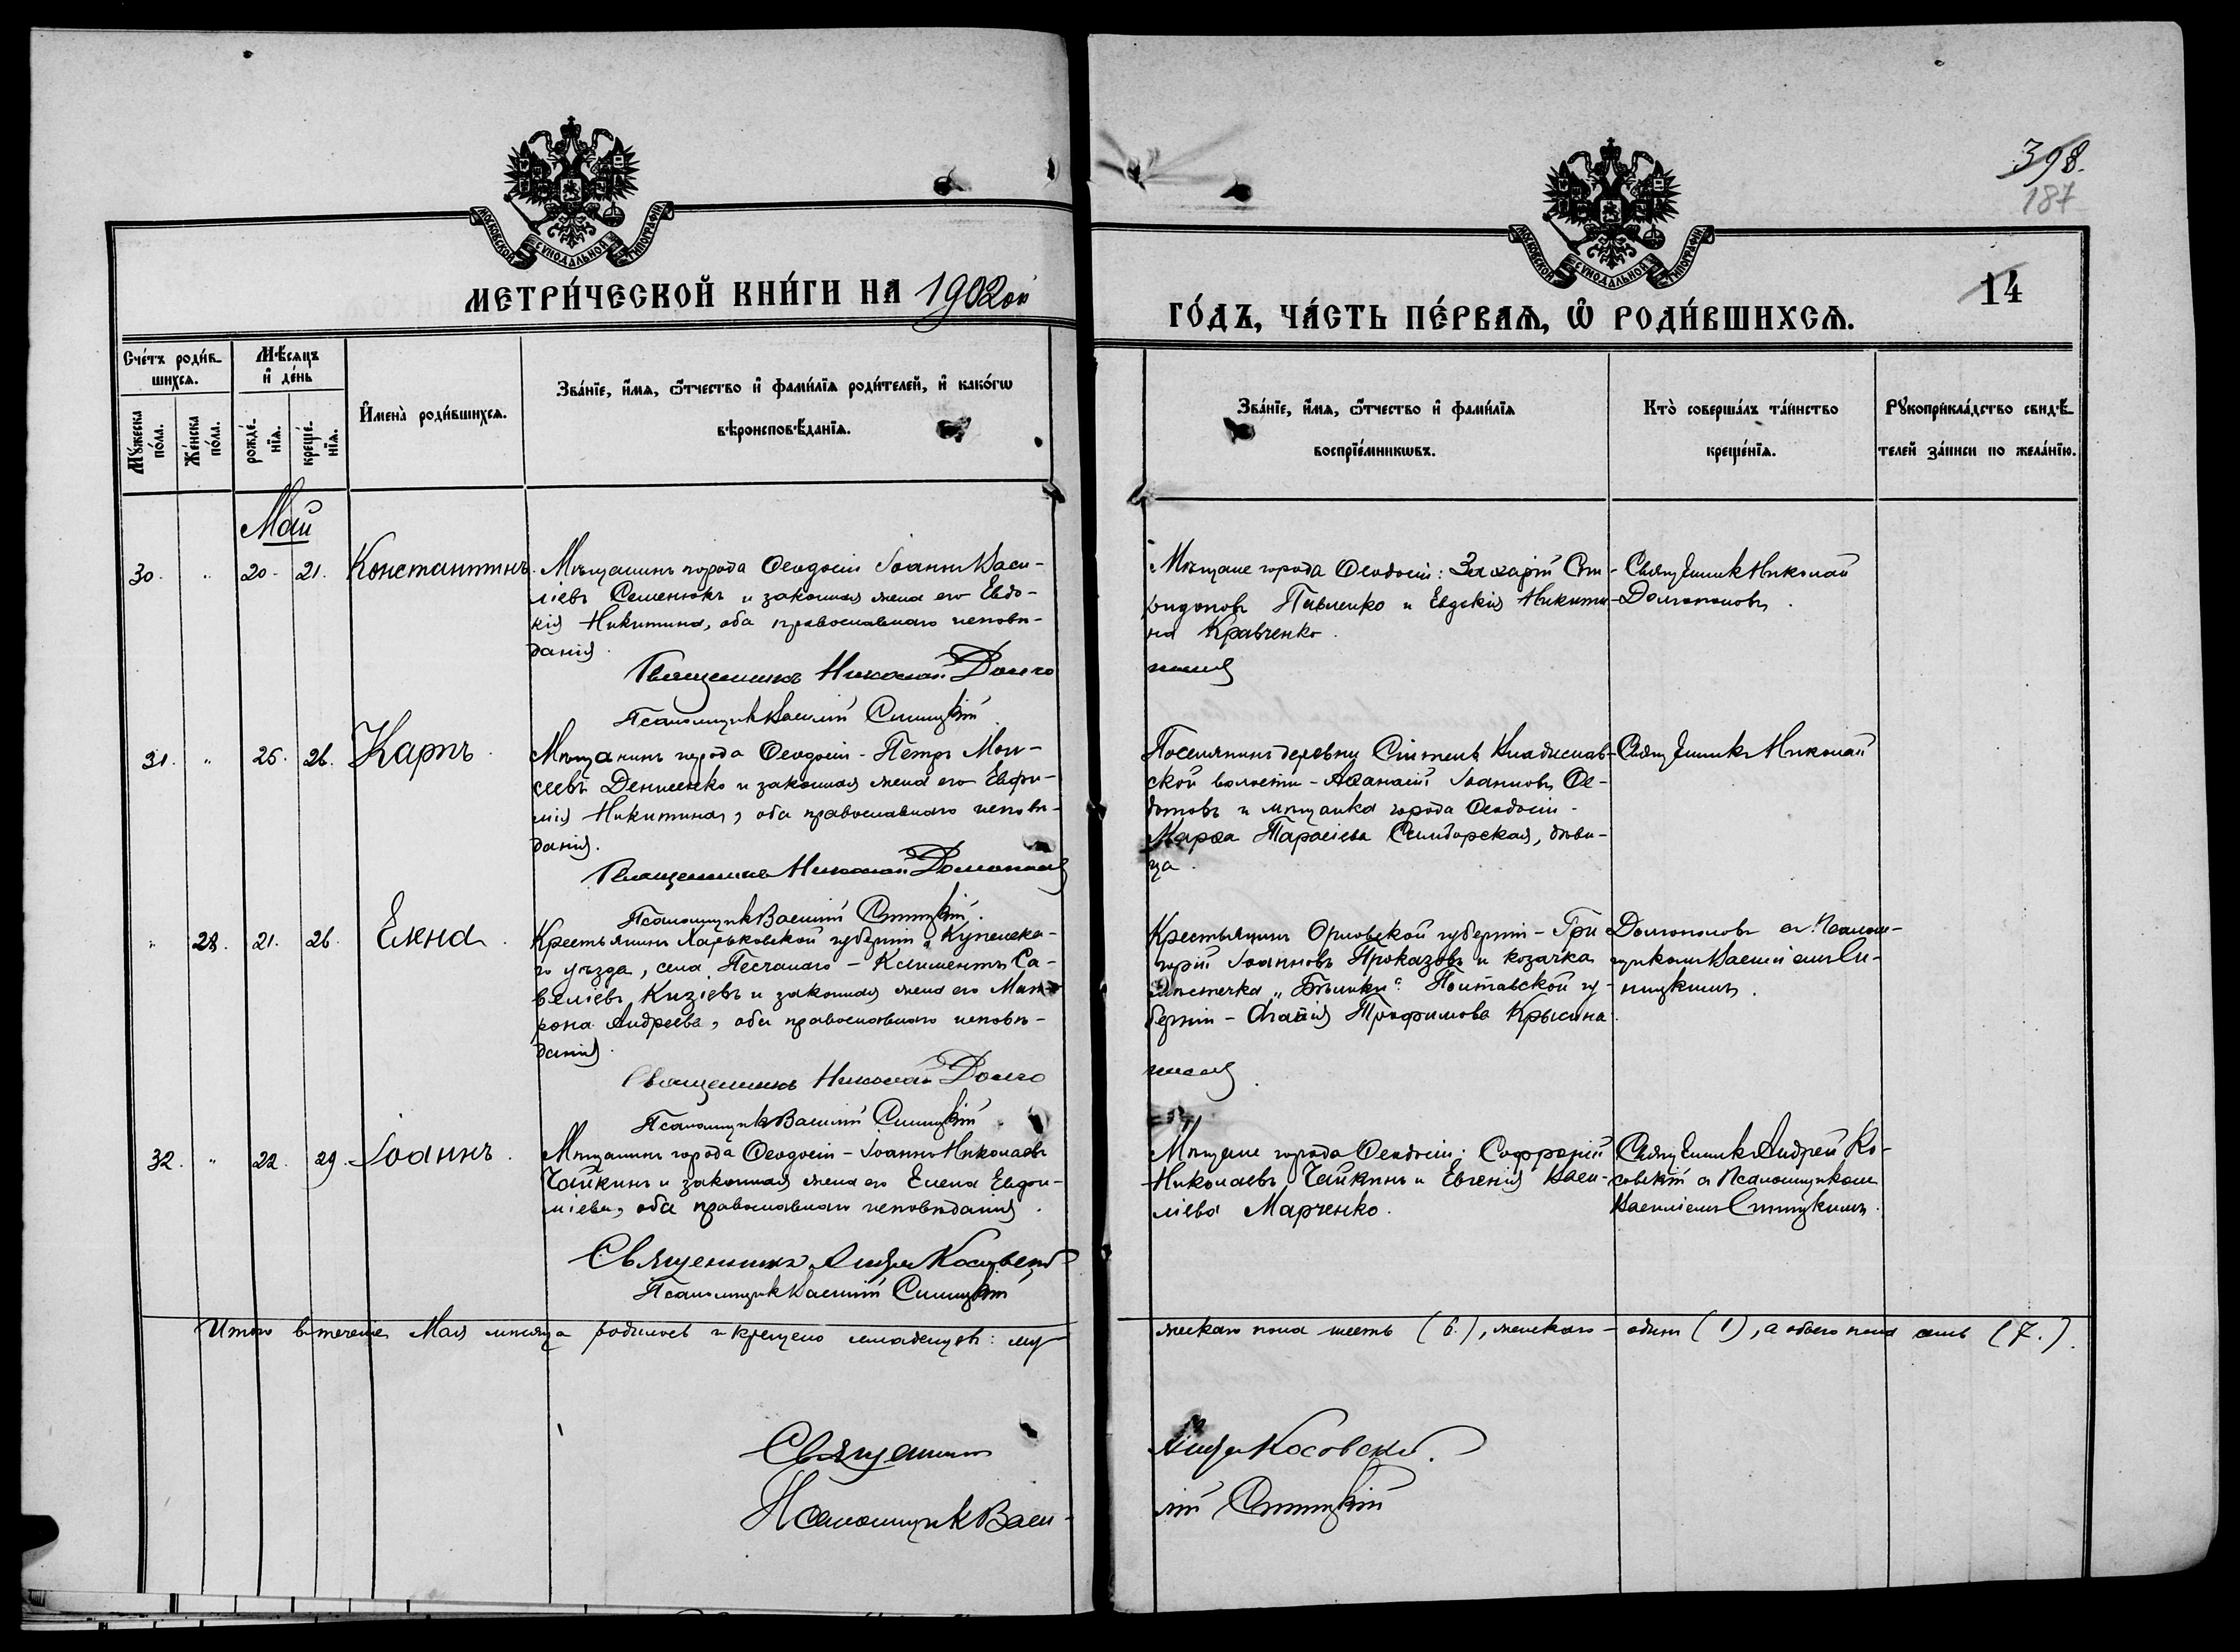 398.
187
14
МОСКОВСКОЙ СѴНОДАЛЬНОЙ ТИПОГРАФІИ
МОСКОВСКОЙ СѴНОДАЛЬНОЙ ТИПОГРАФІИ
МЕТРИ́ЧЕСКОЙ КНИ́ГИ НА 1902ой
ГО́ДЪ, ЧА́СТЬ ПЕ́РВАѦ, Ѡ҆ РОДИ́ВШИХСѦ.
Сче́тъ роди́в-
шихсѧ.
Мꙋ́жеска
по́ла.
Же́нска
по́ла.
Мѣ́сѧцъ
и҆ де́нь
рожде́-
нїѧ.
креще́-
нїѧ.
И҆мена̀ роди́вшихсѧ.
Зва́нїе, и҆́мѧ, ѻ҆́тчество и҆ фами́лїѧ роди́телей, и҆ како́гѡ
вѣроисповѣ́данїѧ.
Зва́нїе, и҆́мѧ, ѻ҆́тчество и҆ фами́лїѧ
воспрїе́мникѡвъ.
Кто̀ соверша́лъ та́инство
креще́нїѧ.
Рꙋкоприкла́дство свидѣ́-
телей за́писи по жела́нїю.
Май
30. " 20. 21. Константинъ. Мѣщанинъ города Ѳеодосіи Іоаннъ Васи-
ліевъ Семенюкъ и законная жена его Евдо-
кія Никитина, оба православнаго исповѣ-
данія.
Священникъ Николай Долго
Псаломщикъ Василій Синицкій
Мѣщане города Ѳеодосіи: Захарій Спи-
ридоновъ Павленко и Евдокія Никити-
на Кравченко.
половъ
Священникъ Николай
Долгополовъ.
31. " 25. 26. Карпъ. Мѣщанинъ города Ѳеодосіи - Петръ Мои-
сеевъ Денисенко и законная жена его Евфи-
мія Никитина, оба православнаго исповѣ-
данія.
Священникъ Николай Долгополовъ
Псаломщикъ Василій Синицкій.
Поселянинъ деревни Владислав-
ской волости - Аѳанасій Іоанновъ Ѳе-
дотовъ и мѣщанка города Ѳеодосіи -
Марѳа Тарасіева дѣви-
ца.
Священникъ Николай
" 28. 21. 26. Елена. Крестьянинъ Харьковской губерніи, Купянска-
го уѣзда, села Песчанаго - Климентъ Са-
веліевъ Кизіевъ и законная жена его Мат-
рона Андреева, оба православнаго исповѣ-
данія.
Священникъ Николай Долго
Псаломщикъ Василій Синицкій
Крестьянинъ Орловской губерніи - Гри
горій Іоанновъ Проказовъ и козачка
мѣстечка „Бѣлики" Полтавской гу-
берніи - Агаѳія Трофимова Крысина.
половъ.
Долгополовъ съ Псалом-
щикомъ Василіемъ Си-
ницкимъ.
32. " 22. 29. Іоаннъ. Мѣщанинъ города Ѳеодосіи - Іоаннъ Николаевъ
Чайкинъ и законная жена его Елена Евдо-
оба православнаго исповѣданія.
Священникъ Андрей Косовскій
Псаломщикъ Василій Синицкій
Мѣщане города Ѳеодосіи: Софроній
Николаевъ Чайкинъ и Евгенія Васи-
ліева Марченко.
Священникъ Андрей Ко-
совскій съ Псаломщикомъ
Василіемъ Синицкимъ.
Итого въ теченіе Мая мѣсяца родилось и крещено младенцевъ: му-
жескаго пола шесть (6.), женскаго - одинъ (1), а обоего пола семь (7.).
Священникъ Андрей Косовскій.
Псаломщикъ Васи-
лій Синицкій